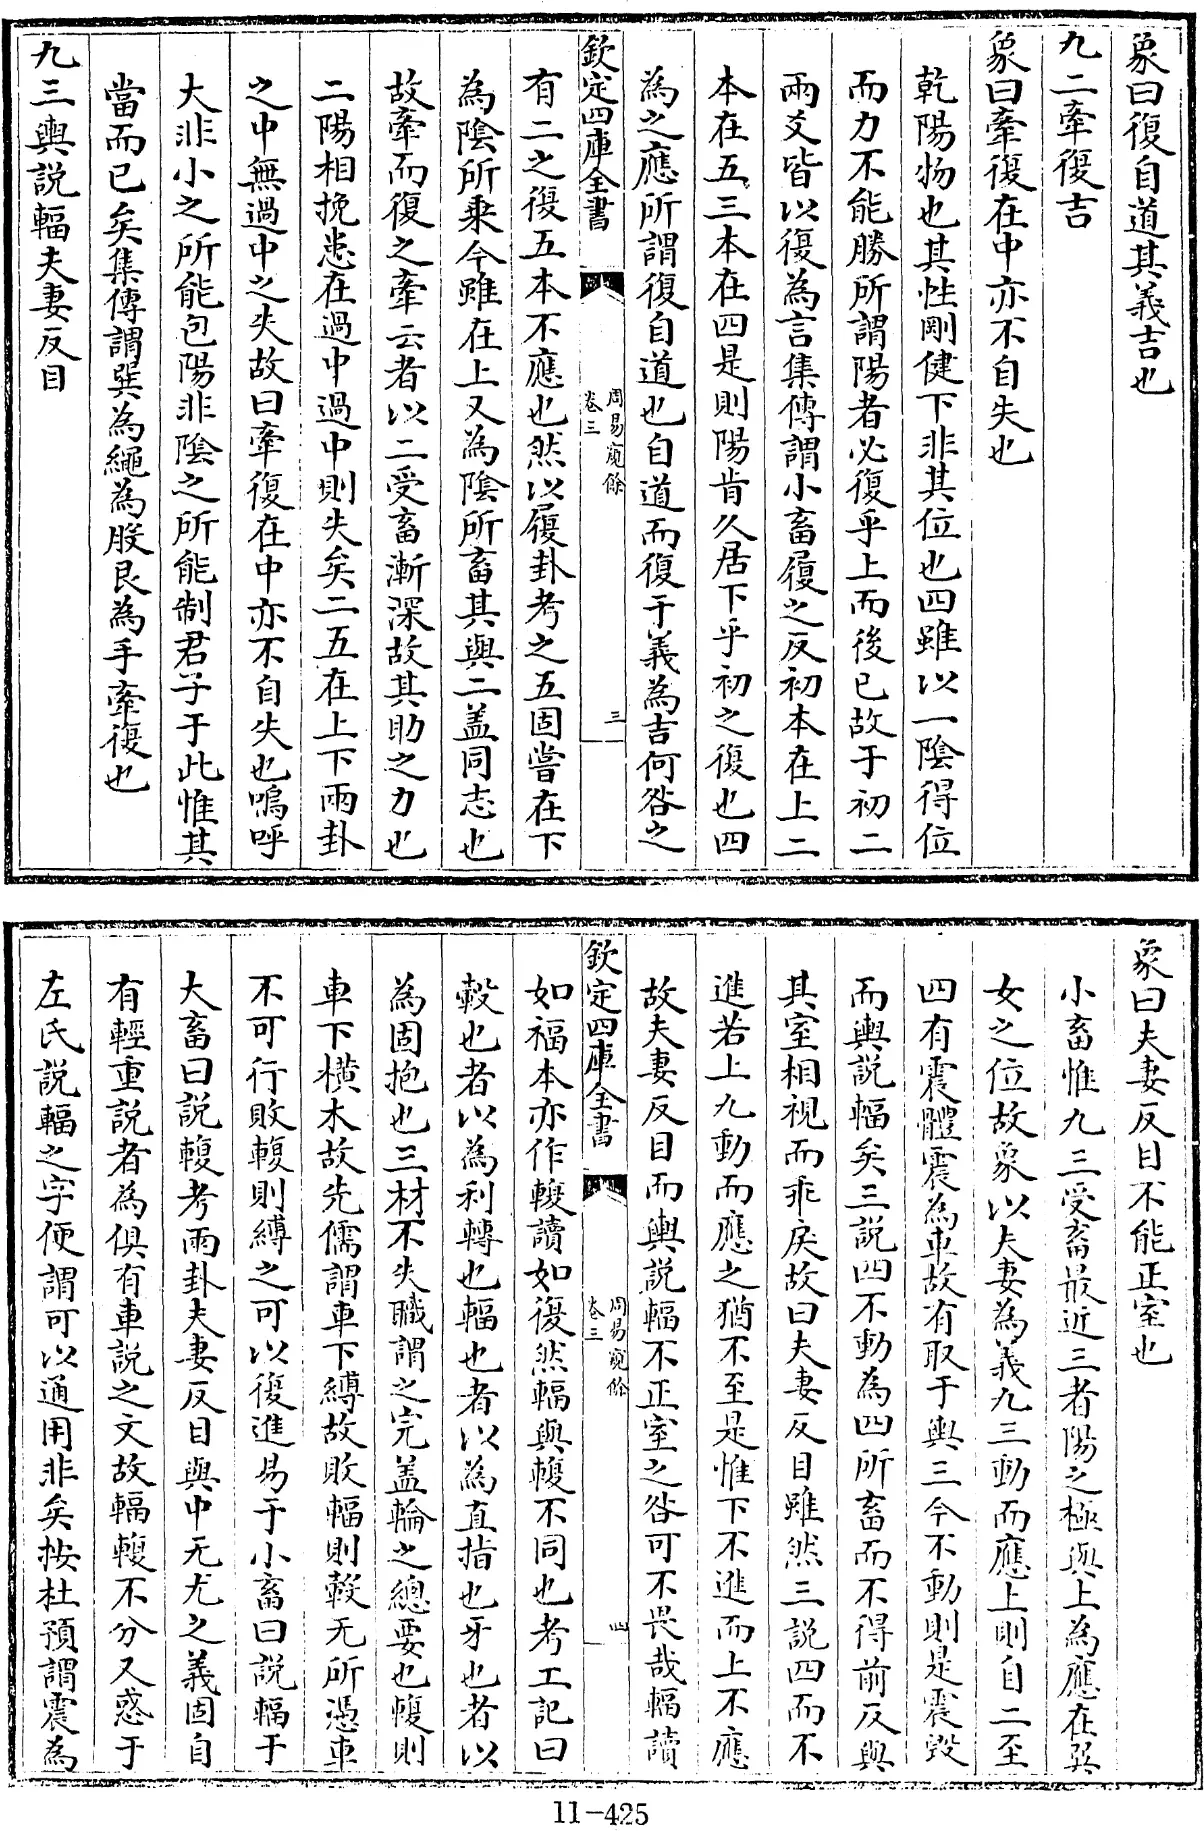 象曰復自道其義吉也
九二牽復吉
象曰牽復在中亦不自失也
乾陽物也其性剛健下非其位也四雖以一陰得位
而力不能勝所謂陽者必復乎上而後已故于初二
兩爻皆以復為言集傳謂小畜履之反初本在上二
本在五三本在四是則陽肯久居下乎初之復也四
為之應所謂復自道也自道而復于義為吉何咎之
欽定四庫全書
周易窺餘
卷三
三
有二之復五本不應也然以履卦考之五固嘗在下
為陰所乘今雖在上又為陰所畜其與二盖同志也
故牽而復之牽云者以二受畜漸深故其助之力也
二陽相挽患在過中過中則失矣二五在上下兩卦
之中無過中之失故曰牽復在中亦不自失也嗚呼
大非小之所能包陽非陰之所能制君子于此惟其
當而已矣集傳謂巽為繩為股艮為手牽復也
九三輿説輻夫妻反目
象曰夫妻反目不能正室也
小畜惟九三受畜最近三者陽之極與上為應在巽
女之位故象以夫妻為義九三動而應上則自二至
四有震體震為車故有取于輿三今不動則是震毀
而輿説輻矣三説四不動為四所畜而不得前反與
其室相視而乖戾故曰夫妻反目雖然三説四而不
進若上九動而應之猶不至是惟下不進而上不應
故夫妻反目而輿説輻不正室之咎可不畏哉輻讀
欽定四庫全書
周易窺餘
卷三
四
如福本亦作輹讀如復然輻與輹不同也考工記曰
轂也者以為利轉也輻也者以為直指也牙也者以
為固抱也三材不失職謂之完盖輪之總要也輹則
車下橫木故先儒謂車下縛故敗輻則轂无所憑車
不可行敗輹則縛之可以復進易于小畜曰説輻于
大畜曰説輹考兩卦夫妻反目與中无尤之義固自
有輕重説者為俱有車説之文故輻輹不分又惑于
左氏説輻之字便謂可以通用非矣按杜預謂震為
11-425